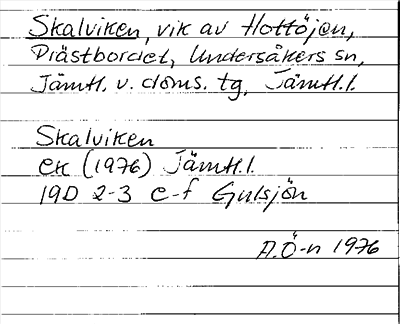 Skalviken, vik av Hottöjen,
Prästbordet, Undersåkers sn,
Jämtl. v. doms. tg, Jämtl.l.
Skalviken
ek (1976) Jämtl.l.
19D 2-3 e-f Gulsjön
A.Ö-n 1976